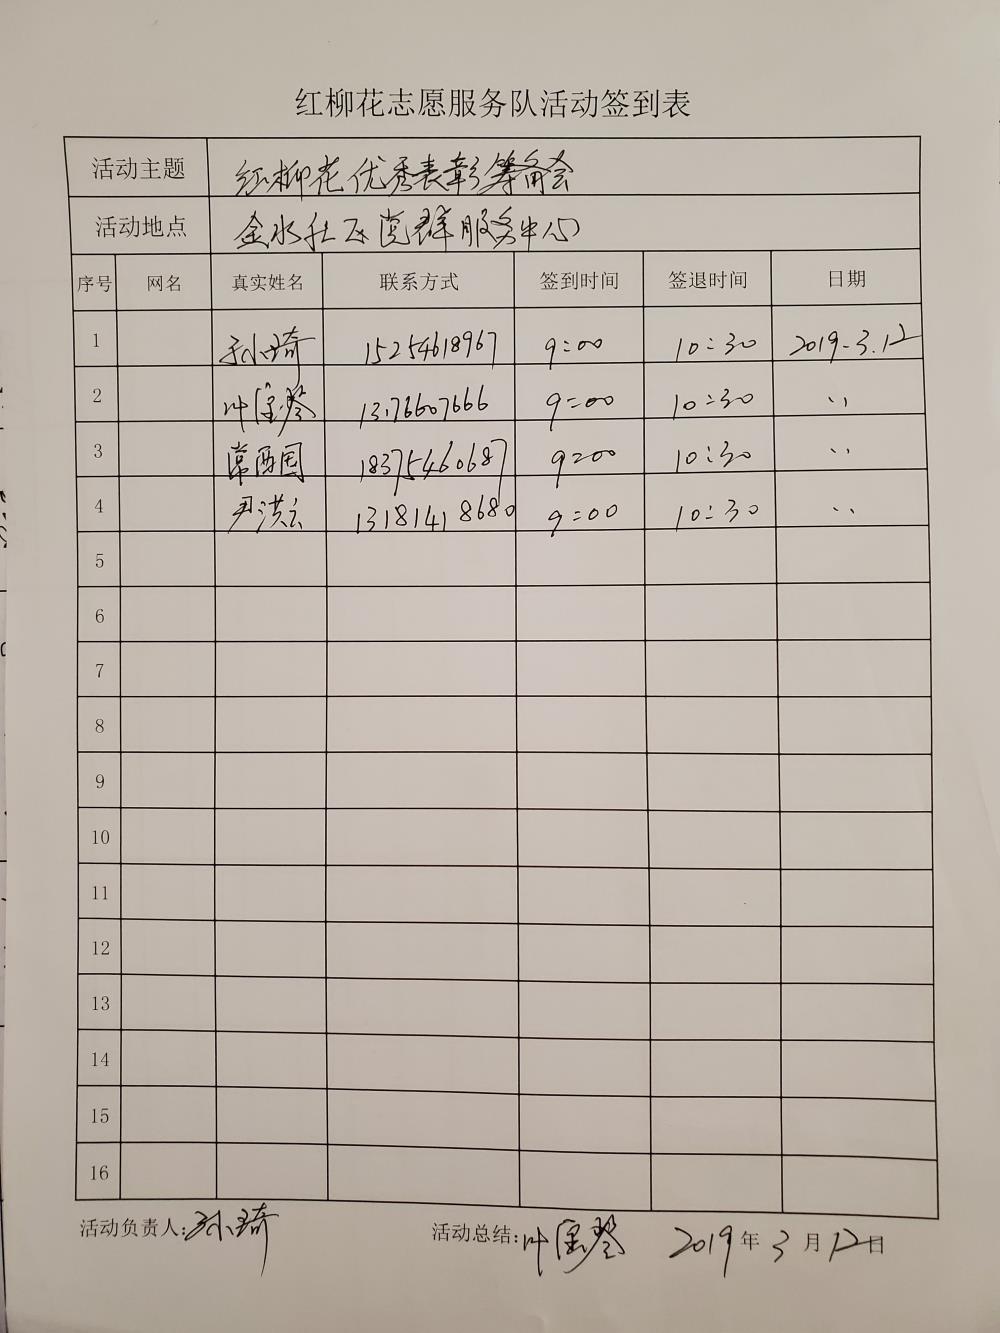 红柳花志愿服务队活动签到表
活动主题 红柳花优秀表彰筹备会
活动地点 金水社区党群服务中心
序号 网名 真实姓名 联系方式 签到时间 签退时间 日期
1 孙琦 15254618967 9:00 10:30 2019-3.12
2 叶宝琴 13176607666 9:00 10:30 〃
3 常西国 18375460687 9:00 10:30 〃
4 尹洪云 13181418680 9:00 10:30 〃
5
6
7
8
9
10
11
12
13
14
15
16
活动负责人:孙琦 活动总结:叶宝琴 2019年3月12日